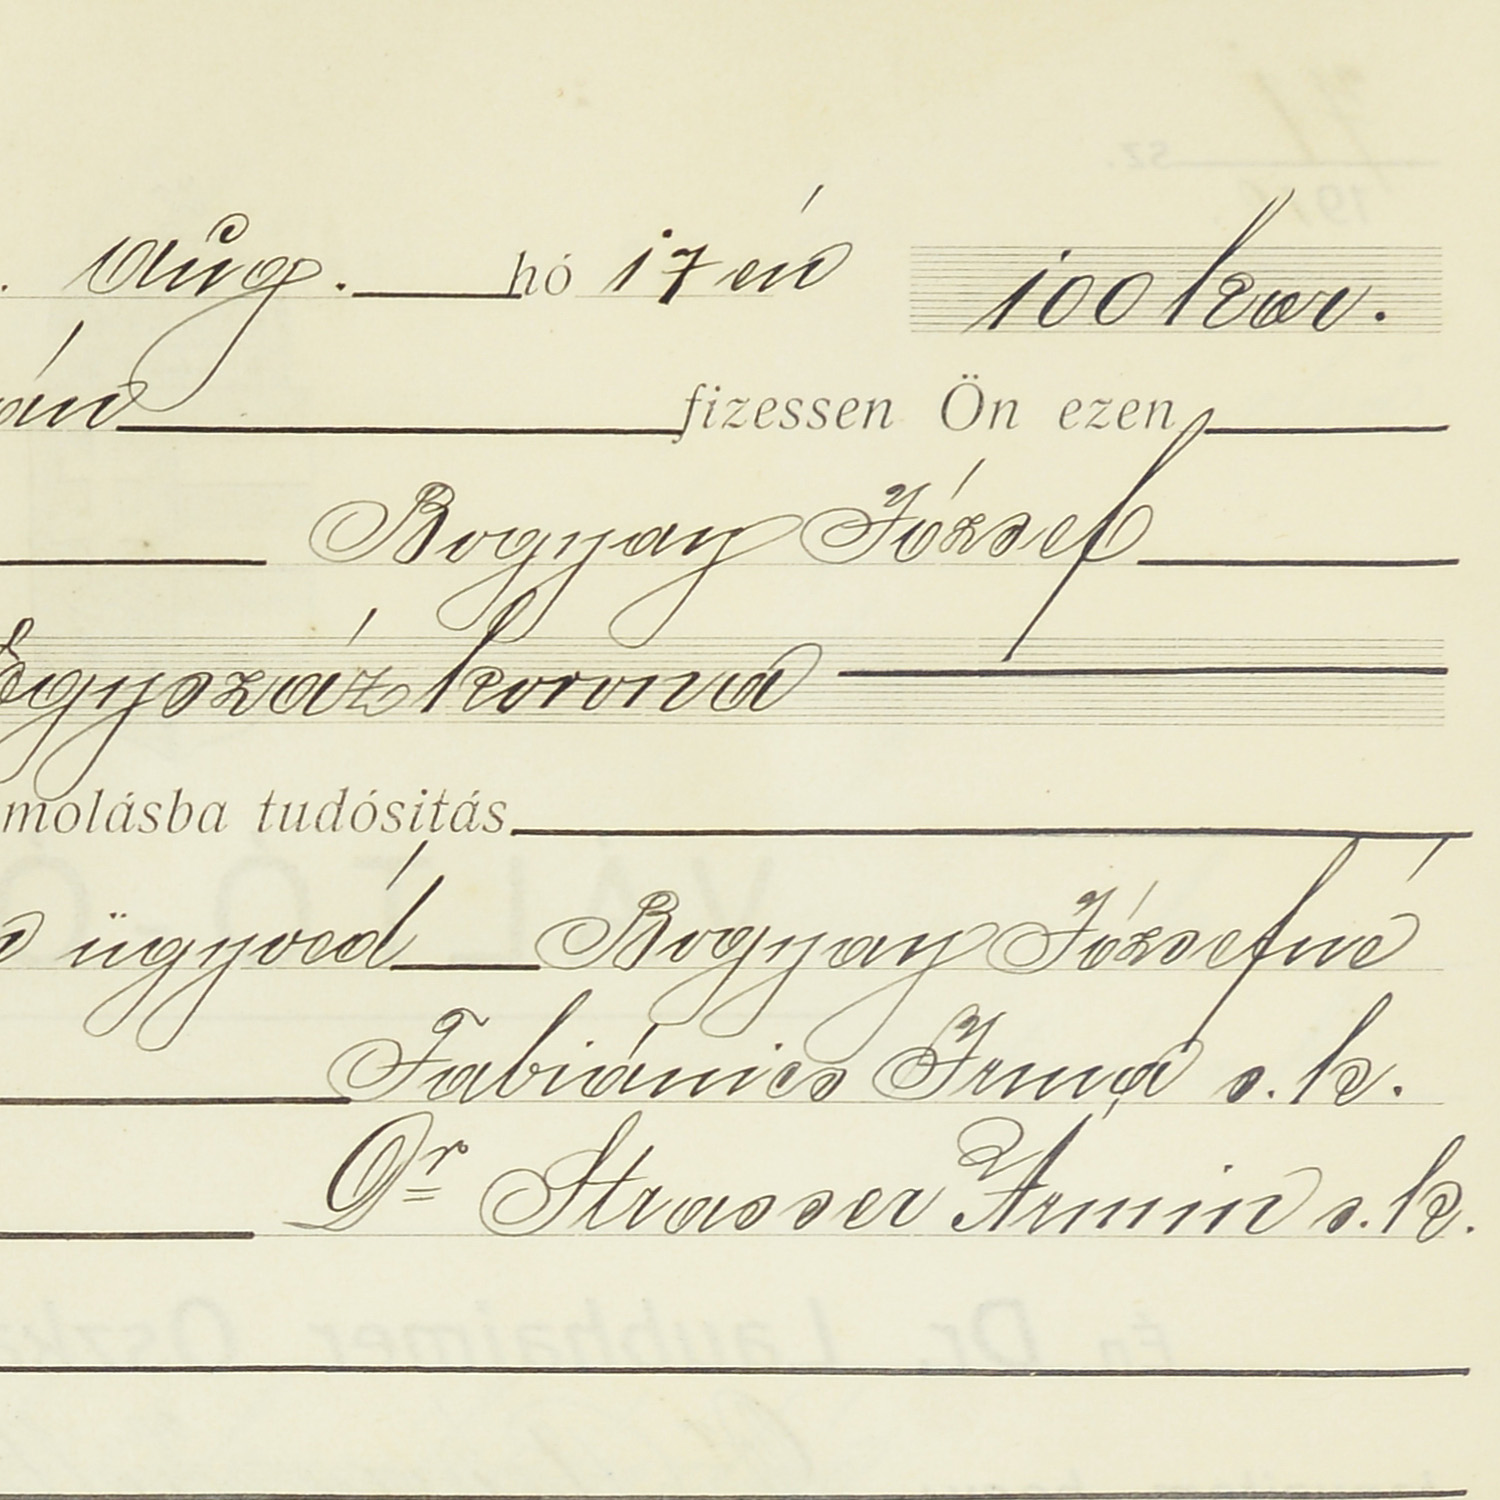 . Aug. hó 17 én 100 kor.
án fizessen Ön ezen
Bogyay József
Egyszáz korona
molásba tudósitás
ügyvéd Bogyay Józsefné
Fabiánics Irma s. k.
Dr Strasser Ármin s. k.